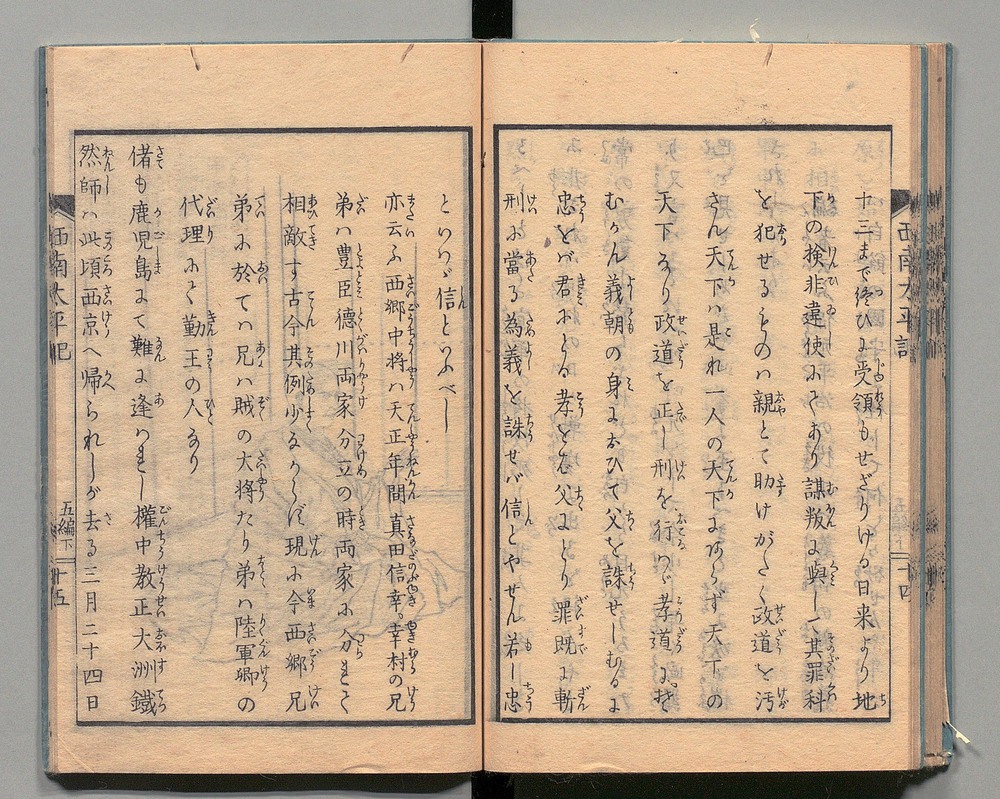 西南太平記
十三まで終ひに受領もせざりける日来より地
下の検非違使にてあり謀叛に與して其罪科
を犯せるものハ親とて助けがたく政道を汚
さん天下ハ是れ一人の天下にあらず天下の
天下なり政道を正し刑を行ハゞ孝道にそ
むかん義朝の身におひて父を誅せしむるに
忠とバ君おとる孝とバ父にとり罪既に斬
刑に當る為義を誅せバ信とやせん若し忠
五編下
十四
といハゞ信といふべし
亦云ふ西郷中将ハ天正年間真田信幸幸村の兄
弟ハ豊臣徳川両家分立の時両家に分れて
相敵す古今其例少なからず現に今西郷兄
弟に於てハ兄ハ賊の大将たり弟ハ陸軍卿の
代理にて勤王の人なり
偖も鹿児島にて難に逢ハれし權中教正大洲鐵
然師ハ此頃西京へ帰られしが去る三月二十四日
西南太平記
五編下
十五